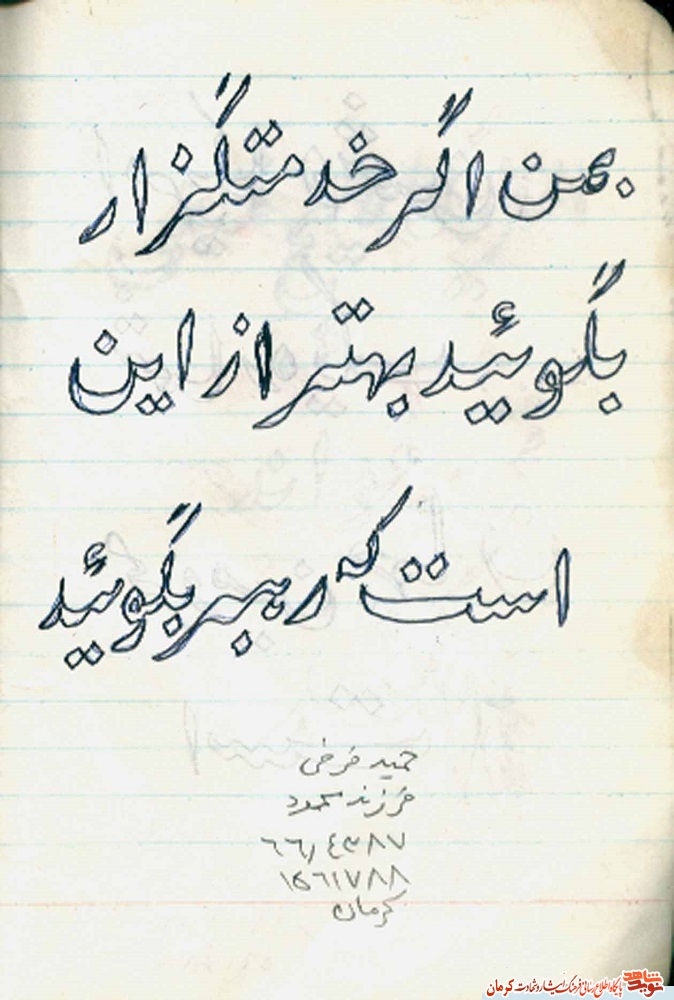 بمن اگر خدمتگزار
بگوئید بهتر از این
است که رهبر بگوئید
حمید فرخی
فرزند محمود
۶۶/۴۳۸۷
۱۵۶۱۷۸۸
کرمان
نوید شاهد پایگاه اطلاع رسانی فرهنگ ایثار و شهادت کرمان